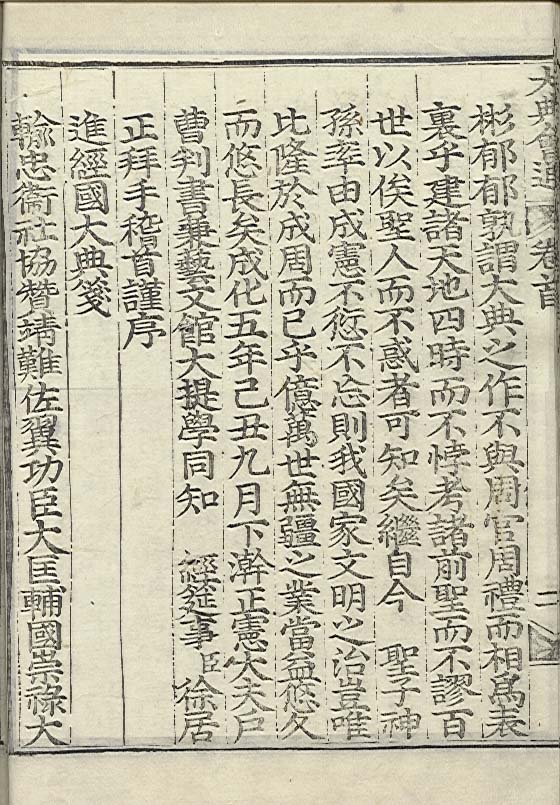 大典會通 卷首 二
彬郁郁孰謂大典之作不與周官周禮而相爲表
裏乎建諸天地四時而不悖考諸前聖而不謬百
世以俟聖人而不惑者可知矣繼自今 聖子神
孫率由成憲不愆不忘則我國家文明之治豈唯
比隆於成周而已乎億萬世無疆之業當益悠久
而悠長矣成化五年己丑九月下澣正憲大夫戶
曹判書兼藝文館大提學同知 經筵事臣徐居
正拜手稽首謹序
進經國大典箋
輸忠衛社協贊靖難佐翼功臣大匡輔國崇祿大